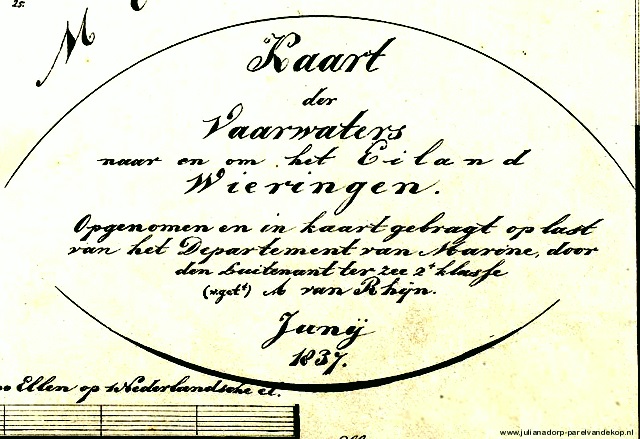 25.
M
Kaart
der
Vaarwaters
naar en om het Eiland
Wieringen.
Opgenomen en in kaart gebragt op last
van het Departement van Marine, door
den luitenant ter zee 2e klasse
(wgetd) A van Rhijn.
Junij
1837.
Ellen op Nederlandsche el.
www.julianadorp-parelvandekop.nl